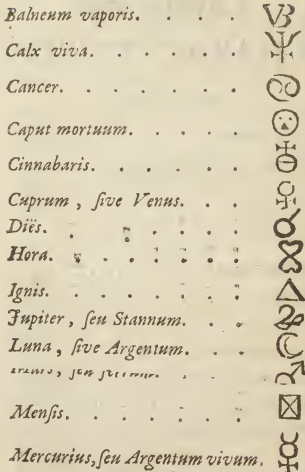 Balneum vaporis. . . . . VB
Calx viva. . . . . .
Cancer. . . . . .
Caput mortuum. . . . .
Cinnabaris. . . . . .
Cuprum , ſive Venus. . .
Diës. . . . . . .
Hora. . . . . . .
Ignis. . . . . . .
Jupiter , ſeu Stannum. . .
Luna , ſive Argentum. . .
Menſis. . . . . .
Mercurius, ſeu Argentum vivum.